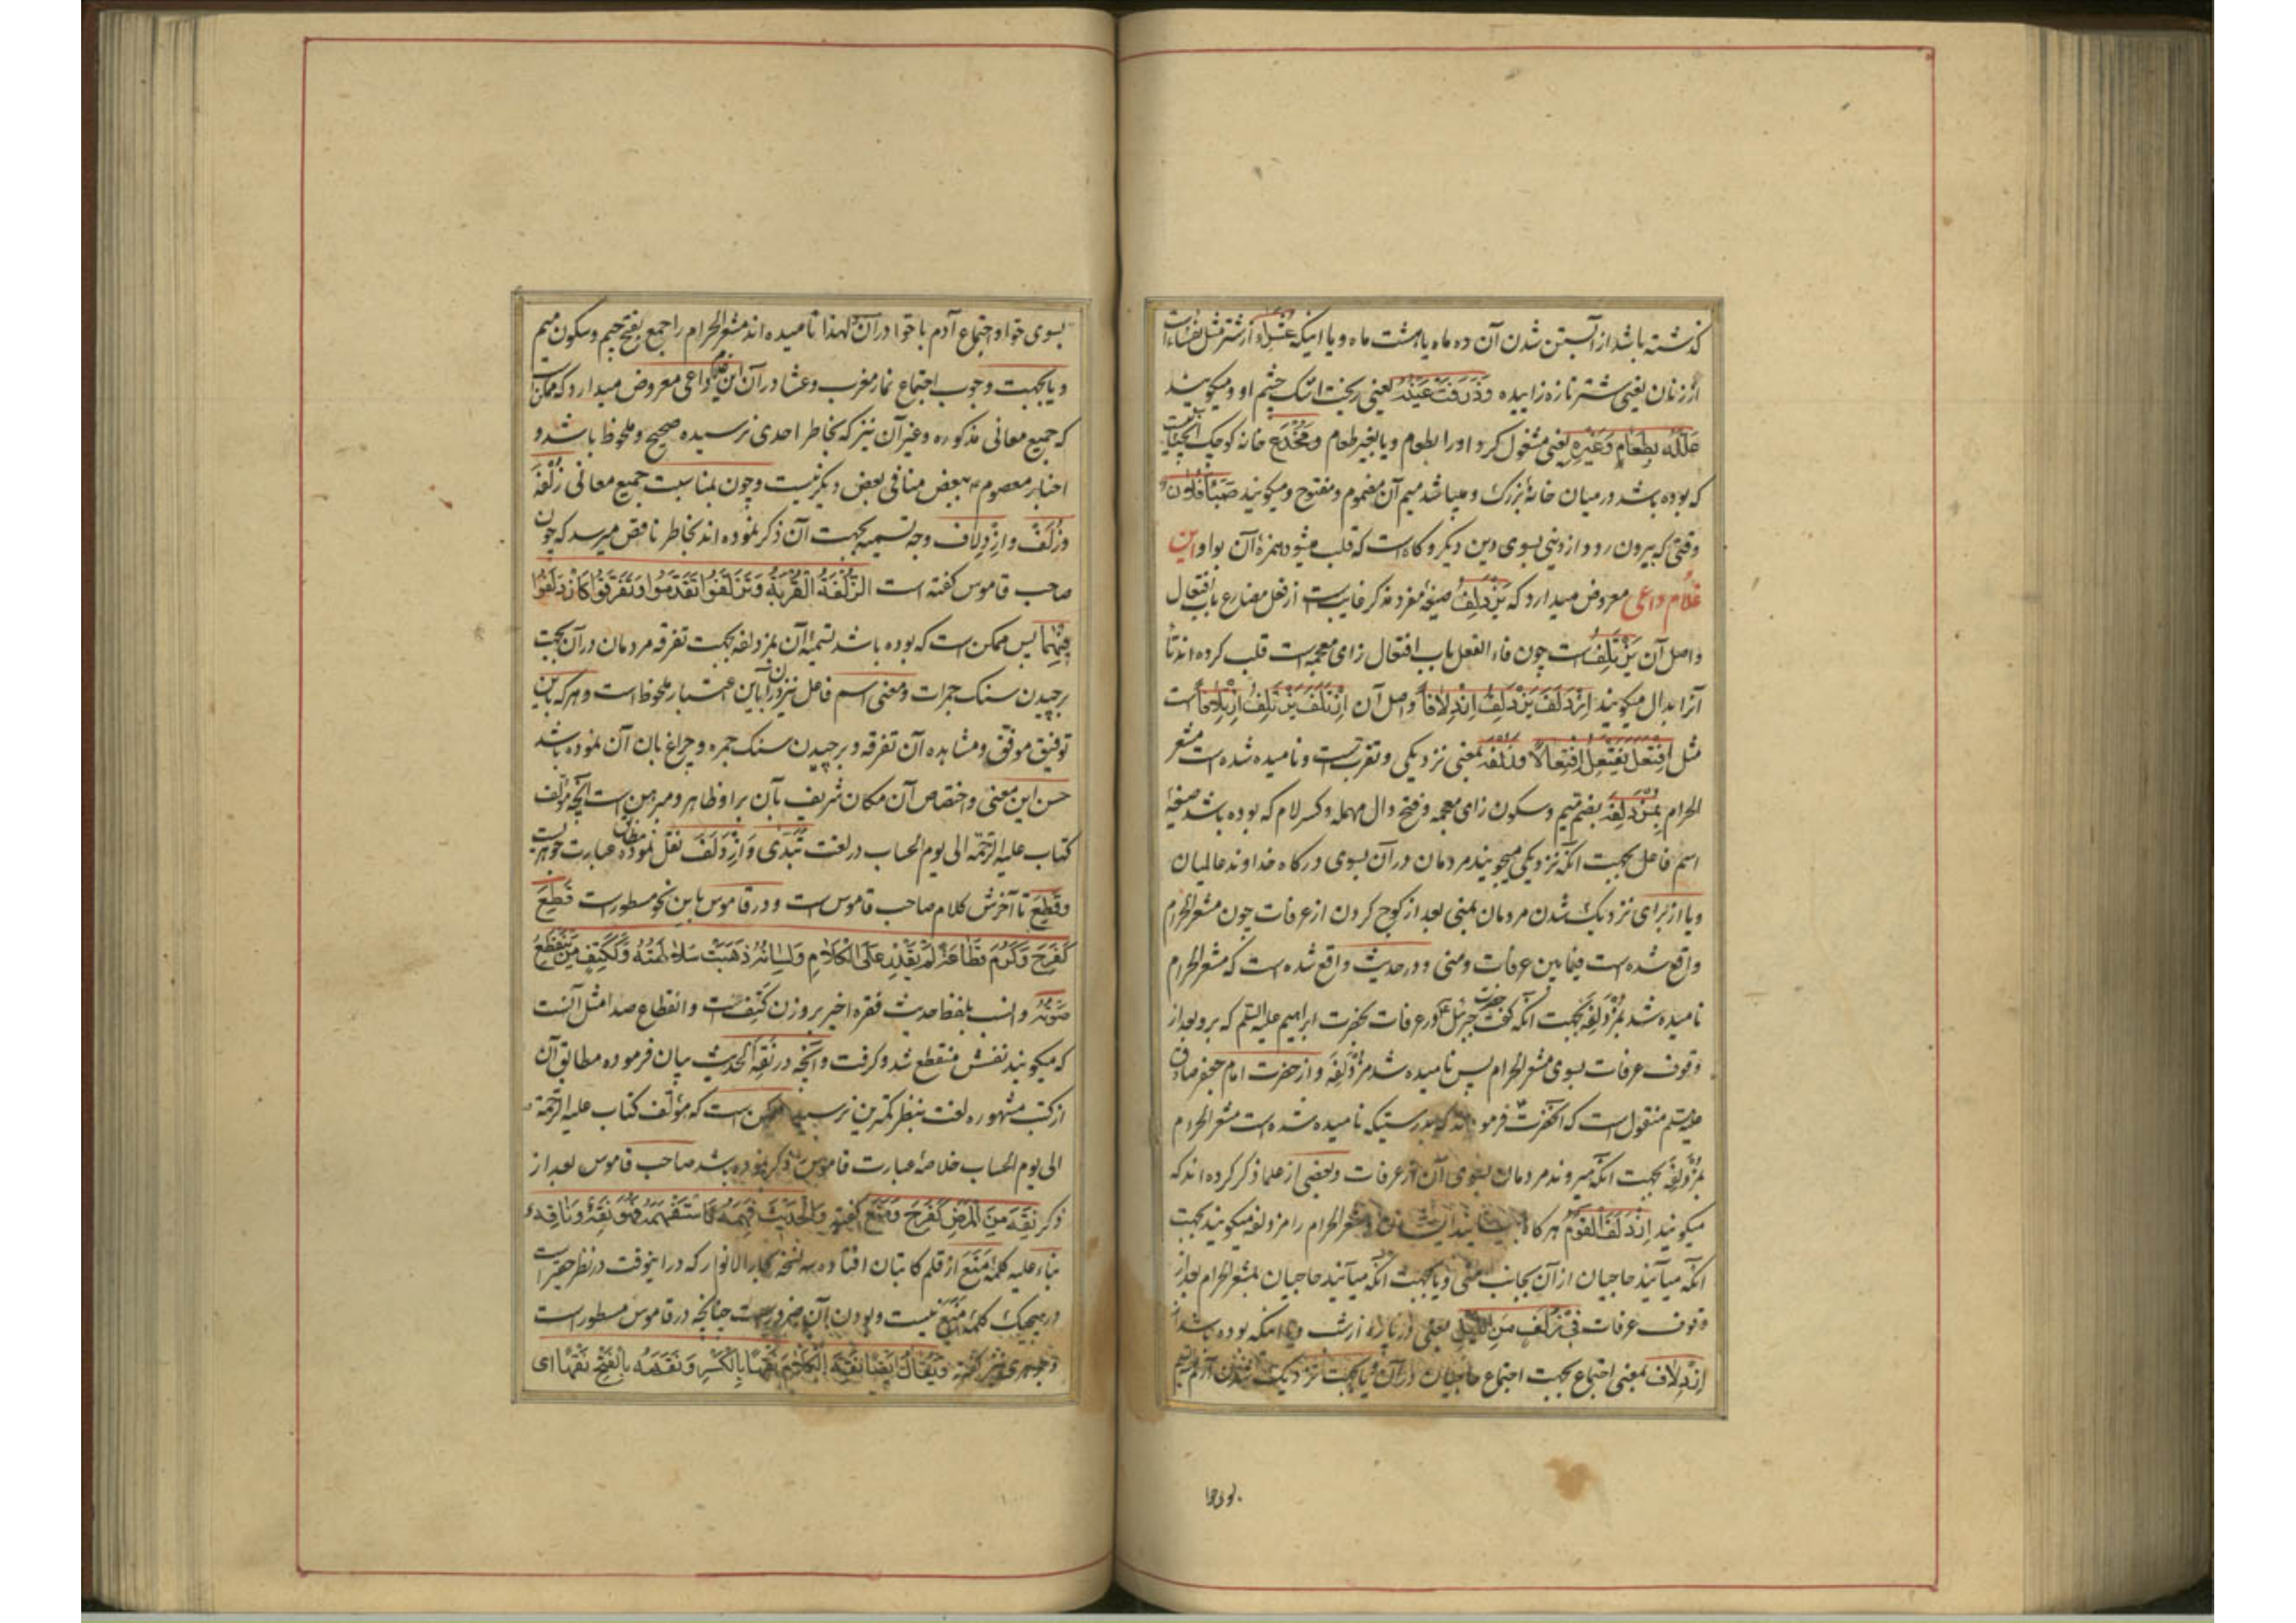 گذشته باشد از آبستن شدن آن ده ماه یا هشت ماه و یا اینکه عشراء از شتر مثل نفساء است
از زنان یعنی شتر تازه زاییده وَذَرَفَتْ عَیْنُهُ یعنی ریخت اشک چشم او و میگویند
عَلَّلَهُ بِطَعَامٍ وَغَیْرِهِ یعنی مشغول کرد او را بطعام و یا بغیر طعام و مُخْدَع خانه کوچک آنچنانیست
که بوده باشد در میان خانهٔ بزرک و میباشد میم آن مضموم و مفتوح و میگویند صَبَأَ فُلان
وقتی که بیرون رود از دینی بسوی دین دیگر و گاه است که قلب میشود همزهٔ آن بواو این
غلام داعی معروض میدارد که یَزْدَلِفُ صیغهٔ مفرد مذکر غایب است از فعل مضارع باب افتعال
و اصل آن یَزْتَلِفُ است چون فاء الفعل باب افتعال زای معجمه است قلب کرده اند تا
آنرا بدال میگویند اِزْدَلَفَ یَزْدَلِفُ اِزْدِلافاً و اصل آن اِزْتَلَفَ یَزْتَلِفُ اِزْتِلافاً است
مثل اِفْتَعَلَ یَفْتَعِلُ اِفْتِعالاً و زُلْفَه بمعنی نزدیکی و تقرب است و نامیده شده است مشعر
الحرام بِمُزْدَلِفَه بضم میم و سکون زای معجمه و فتح دال مهمله و کسر لام که بوده باشد صیغهٔ
اسم فاعل بجهت آنکه نزدیکی میجویند مردمان در آن بسوی درکاه خداوند عالمیان
و یا از برای نزدیک شدن مردمان بمنی بعد از کوچ کردن از عرفات چون مشعر الحرام
واقع شده است فیما بین عرفات و منی و در حدیث واقع شده است که مشعر الحرام
نامیده شد بمُزْدَلِفَه بجهت آنکه گفت حضرت جبرئیل در عرفات بحضرت ابراهیم علیه السلم که برو بعد از
وقوف عرفات بسوی مشعر الحرام پس نامیده شد مُزْدَلِفَه و از حضرت امام جعفر صادق
علیه السلم منقول است که آنحضرت فرمودند که بدرستیکه نامیده شده است مشعر الحرام
بمُزْدَلِفَه بجهت آنکه میروند مردمان بسوی آن از عرفات و بعضی از علما ذکر کرده اند که
میگویند اِزْدَلَفَ القَوْمُ هر گاه مشعر الحرام را مزدلفه میگویند بجهت
آنکه میآیند حاجیان از آن بجانب منی و یا بجهت آنکه میآیند حاجیان بمشعر الحرام بعد از
وقوف عرفات فی زُلَفٍ مِنَ اللَّیْلِ یعنی در پارهٔ از شب و یا آنکه بوده باشد از
اِزْدِلاف بمعنی اجتماع بجهت اجتماع حاجیان در آن و یا بجهت نزدیک شدن آدم
بسوی حوا
بسوی حوا و اجتماع آدم با حوا در آن و لهذا نامیده اند مشعر الحرام را جمع بفتح جیم و سکون میم
و یا بجهت وجوب اجتماع نماز مغرب و عشا در آن این غلام داعی معروض میدارد که ممکن است
که جمیع معانی مذکوره و غیر آن نیز که بخاطر احدی نرسیده صحیح و ملحوظ باشد و
اخبار معصوم بعض منافی بعض دیگر نیست و چون بمناسبت جمیع معانی زُلْفَه
وَزُلَفْ وَاِزْدِلاف وجه تسمیه بجهت آن ذکر نموده اند بخاطر ناقص میرسد که چون
صاحب قاموس گفته است الزُّلْفَةُ الْقُرْبَةُ وَتَزَلَّفُوا تَقَدَّمُوا وَتَفَرَّقُوا كَازْدَلَفُوا
فِیهِمَا پس ممکن است که بوده باشد تسمیهٔ آن بمزدلفه بجهت تفرقه مردمان در آن بجهت
برچیدن سنک جمرات و معنی اسم فاعل نیز در آن باین اعتبار ملحوظ است و هر که باین
توفیق موفق و مشاهده آن تفرقه و برچیدن سنک جمره و چراغان آن نموده باشد
حسن این معنی و اختصاص آن مکان شریف بآن بر او ظاهر و مبرهن است آنچه مؤلف
کتاب علیه الرحمه الی یوم الحساب در لغت تَبَدّی وَاِزْدَلَفَ نقل نموده مطابق عبارت جوهریست
و قَطِعَ تا آخرش کلام صاحب قاموس است و در قاموس باین نحو مسطور است قَطِعَ
كَفَرِحَ وَكَرُمَ قَطَاعَةً لَمْ یَقْدِرْ عَلَی الْكَلامِ وَلِسَانُهُ ذَهَبَتْ سَلاطَتُهُ وَكَكَتِفٍ مَنْ یَنْقَطِعُ
صَوْتُهُ و انسب بلفظ حدیث فقره اخیر بر وزن کَتِف است و انقطاع صدا مثل آنست
که میگویند نفسش منقطع شد و گرفت و آنچه در نَقِهَ الحدیث بیان فرموده مطابق آن
از کتب مشهوره لغت بنظر کمترین نرسید ممکن است که مؤلف کتاب علیه الرحمة
الی یوم الحساب خلاصهٔ عبارت قاموس را ذکر نموده باشد صاحب قاموس بعد از
ذکر نَقِهَ مِنَ الْمَرَضِ كَفَرِحَ وَمَنَعَ گفته وَالْحَدِیثَ فَهِمَهُ كَاسْتَنْقَهَهُ فَهُوَ نَقِهٌ وَنَاقِهٌ
بناء علیه کلمهٔ مَنَعَ از قلم کاتبان افتاده سه نسخه بحار الانوار که در اینوقت در نظر حقیر است
در هیچیک کلمهٔ مَنَعَ نیست و بودن آن ضرور است چنانچه در قاموس مسطور است
و جوهری نیز گفته وَیُقَالُ اَیْضاً نَقِهَ الْكَلامَ نَقَهاً بِالْكَسْرِ وَنَقَهَهُ بِالْفَتْحِ نَقْهاً ای